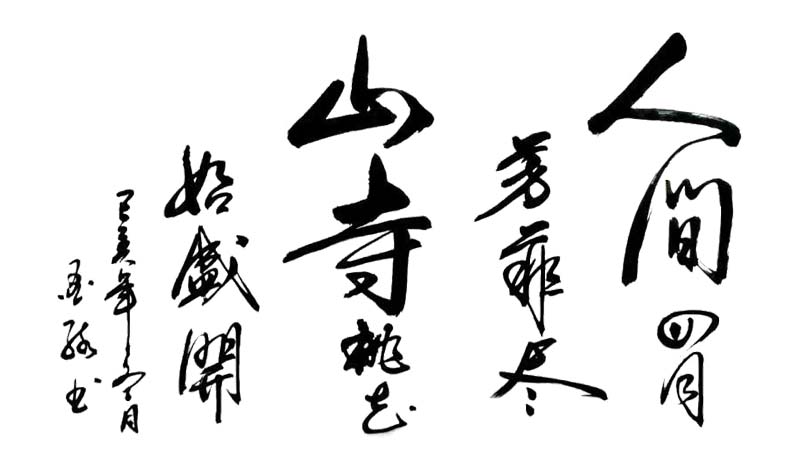 人間四月
芳菲尽
山寺桃花
始盛開
己亥年冬月
书